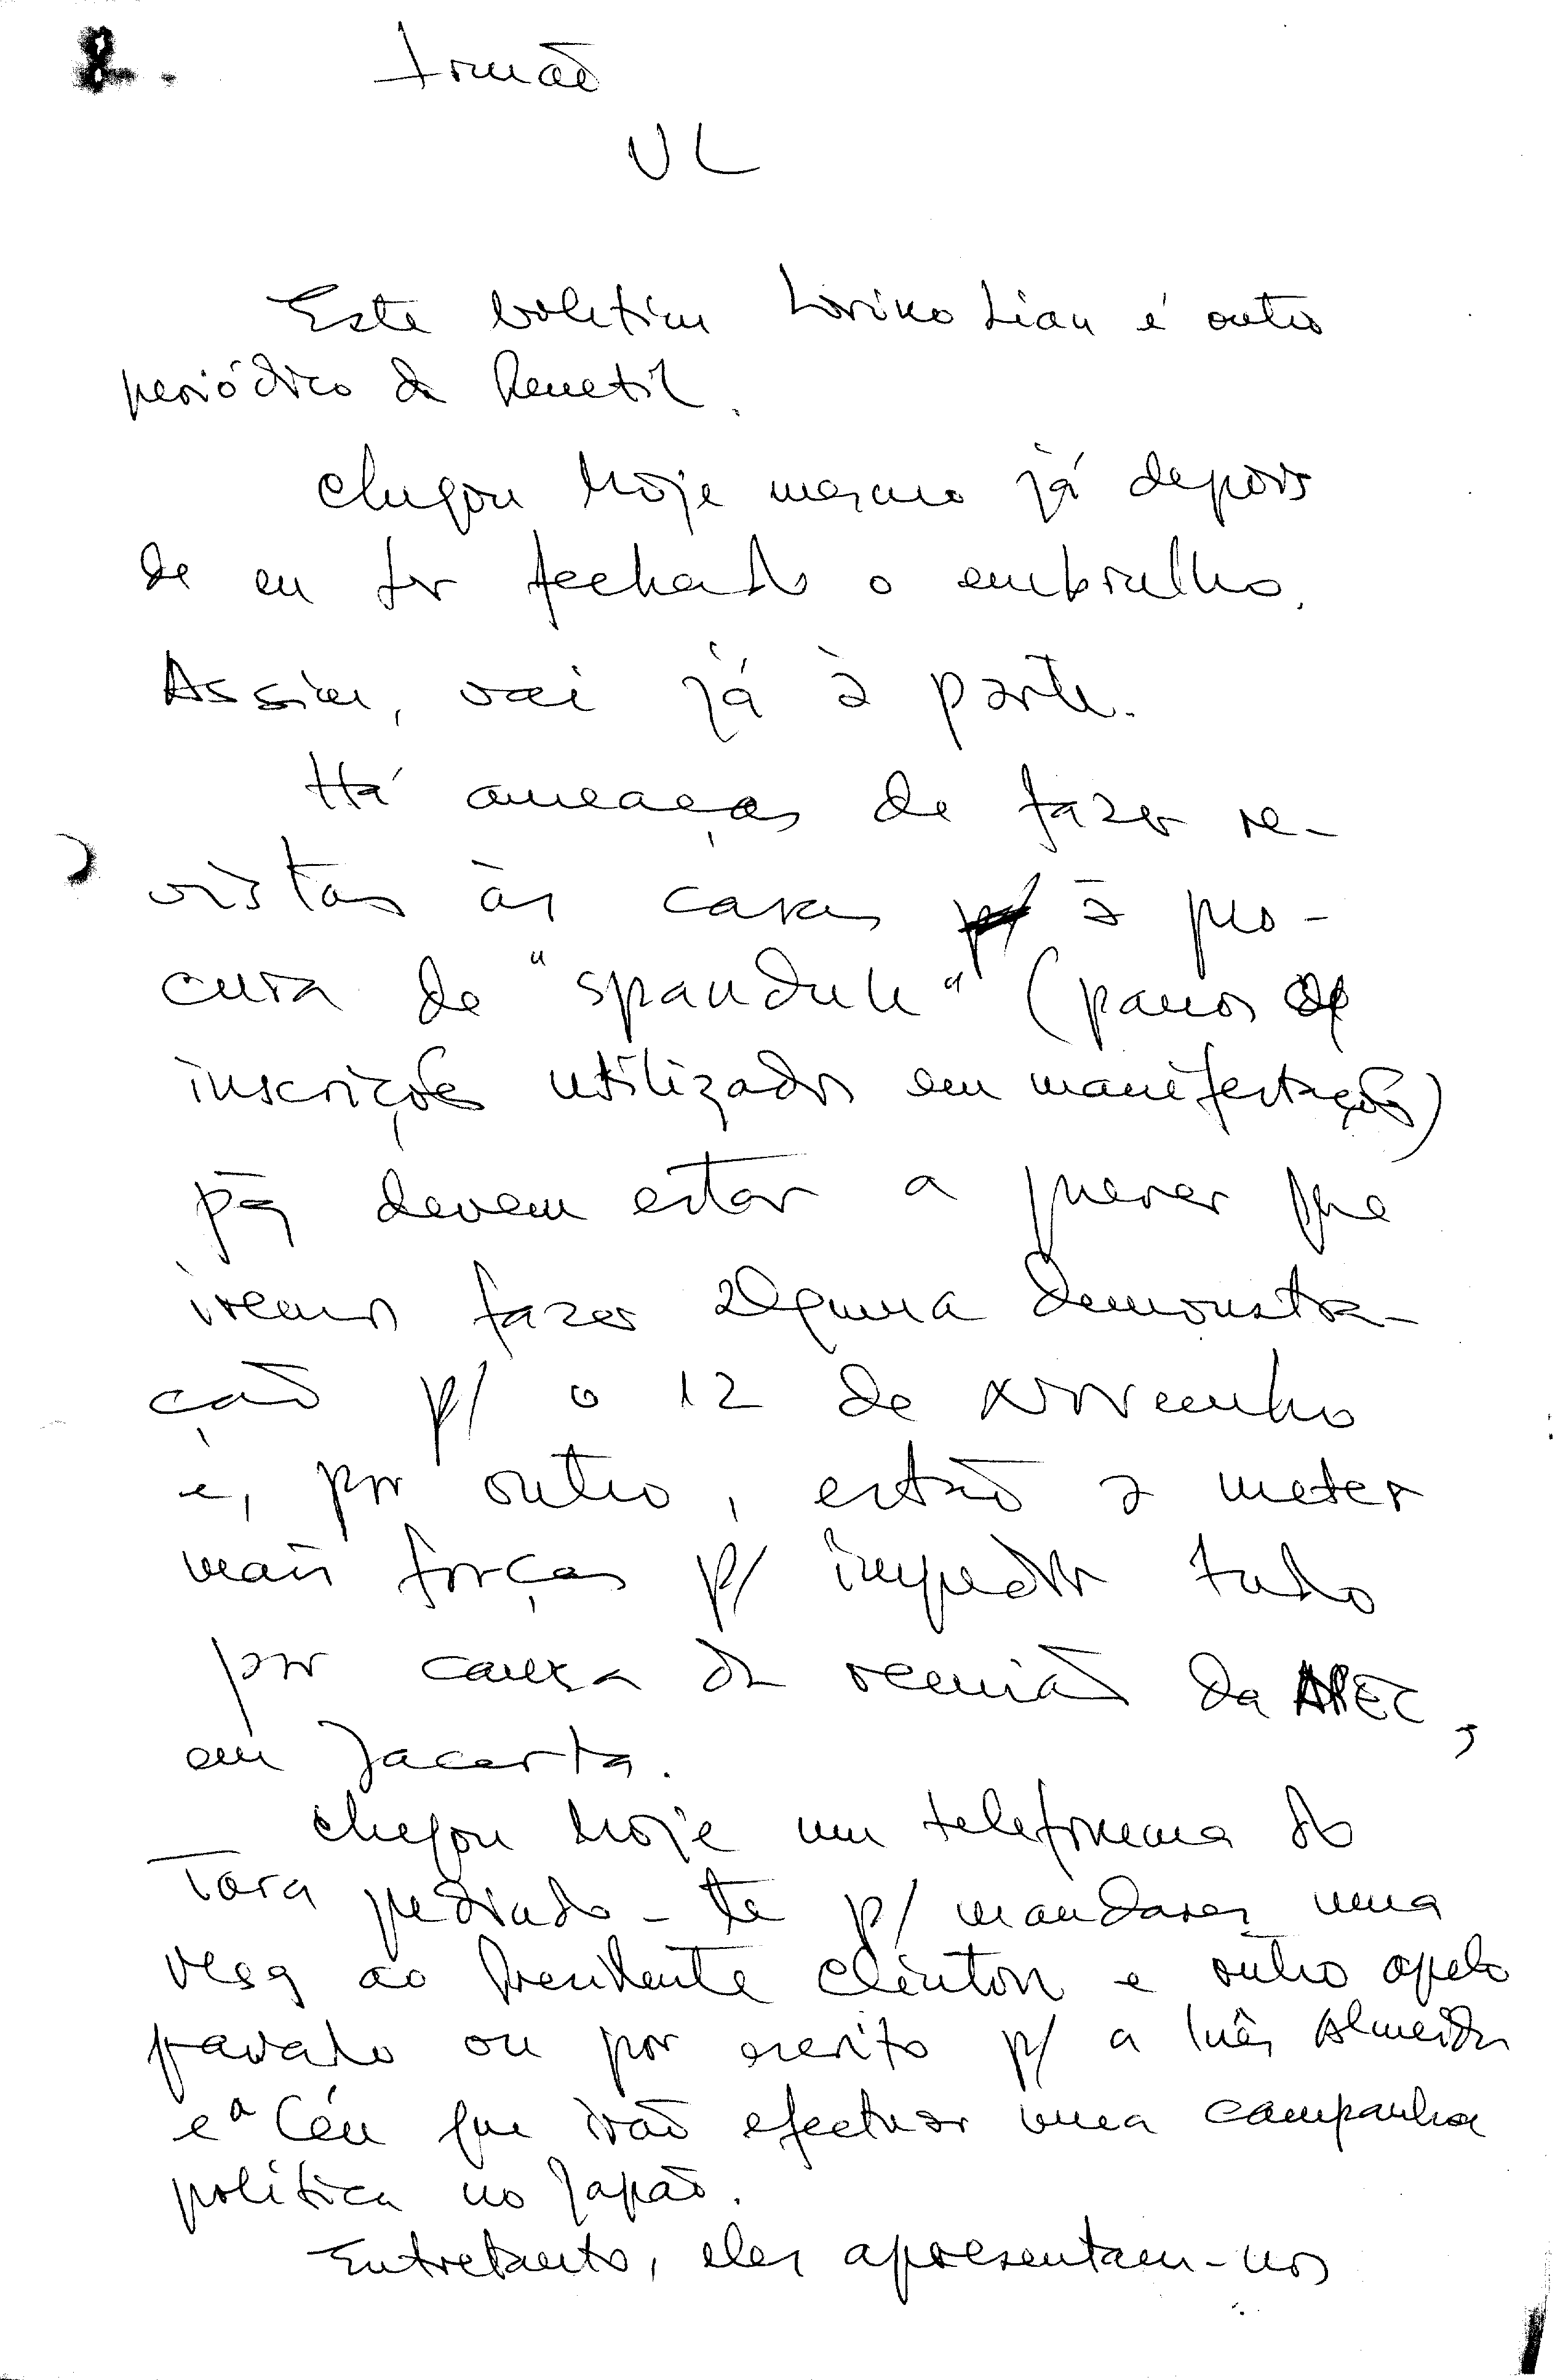 2.
Irmão
UL
Este boletim Loriko Lian é outro
periódico da Renetil.
Chegou hoje mesmo já depois
de eu ter fechado o embrulho.
Assim, vai já à parte.
Há ameaças de fazer re-
vistas às casas à pro-
cura de "spanduk" (panos de
inscrições utilizados em manifestações)
pq devem estar a prever que
iremos fazer alguma demonstra-
ção p/ o 12 de Novembro
e, por outro, estão a meter
mais forças p/ impedir tudo
por causa da reunião da APEC,
em Jacarta.
Chegou hoje um telefonema do
Tara pedindo-te p/ mandares uma
msg ao Presidente Clinton e outro apelo
gravado ou por escrito p/ a Inês Almeida
e a Céu que irão efectuar uma campanha
política no Japão.
Entretanto, eles apresentam-nos